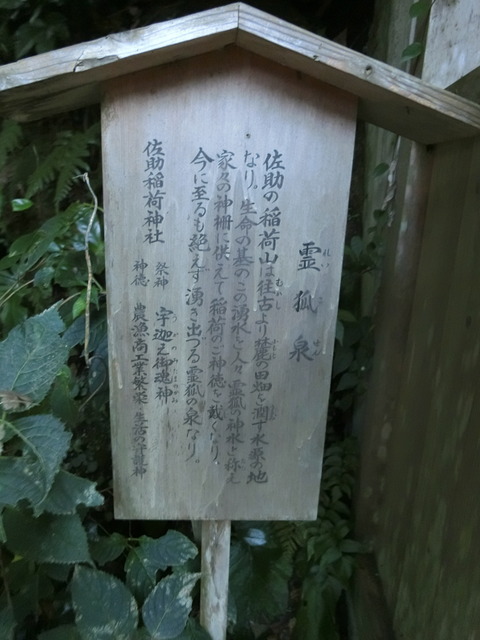 霊狐泉
れいこせん
佐助の稲荷山は往古より麓の田畑を潤す水源の地
むかし
なり。生命の基のこの湧水を人々霊狐の神水と称え
家々の神棚に供えて稲荷のご神徳を戴くなり。
今に至るも絶えず湧き出づる霊狐の泉なり。
佐助稲荷神社
祭神 宇迦之御魂神
うかのみたまのかみ
神徳 農漁商工業繁栄 生活の守護神